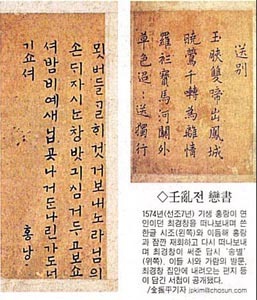 묏버들ᄀᆞᆯᄒᆡ것거보내노라님의
손ᄃᆡ자시ᄂᆞᆫ창밧긔심거두고보쇼
셔밤비예새닙곳나거든나린가도너
기쇼셔
홍낭
送別
玉頰雙啼出鳳城
曉鶯千囀為離情
羅衫寶馬河關外
草色迢〻送獨行
◇壬亂전 戀書
1574년(선조7년) 기생 홍랑이 연
인이던 최경창을 떠나보내며 쓴
한글 시조(왼쪽)와 이듬해 홍랑
과 잠깐 재회하고 다시 떠나보내
며 최경창이 써준 답시 「송별」
(위쪽). 이들 시와 가람의 발문,
최경창 집안에 내려오는 편지 등
이 담긴 서첩이 공개됐다.
/金振平기자 jpkim@chosun.com